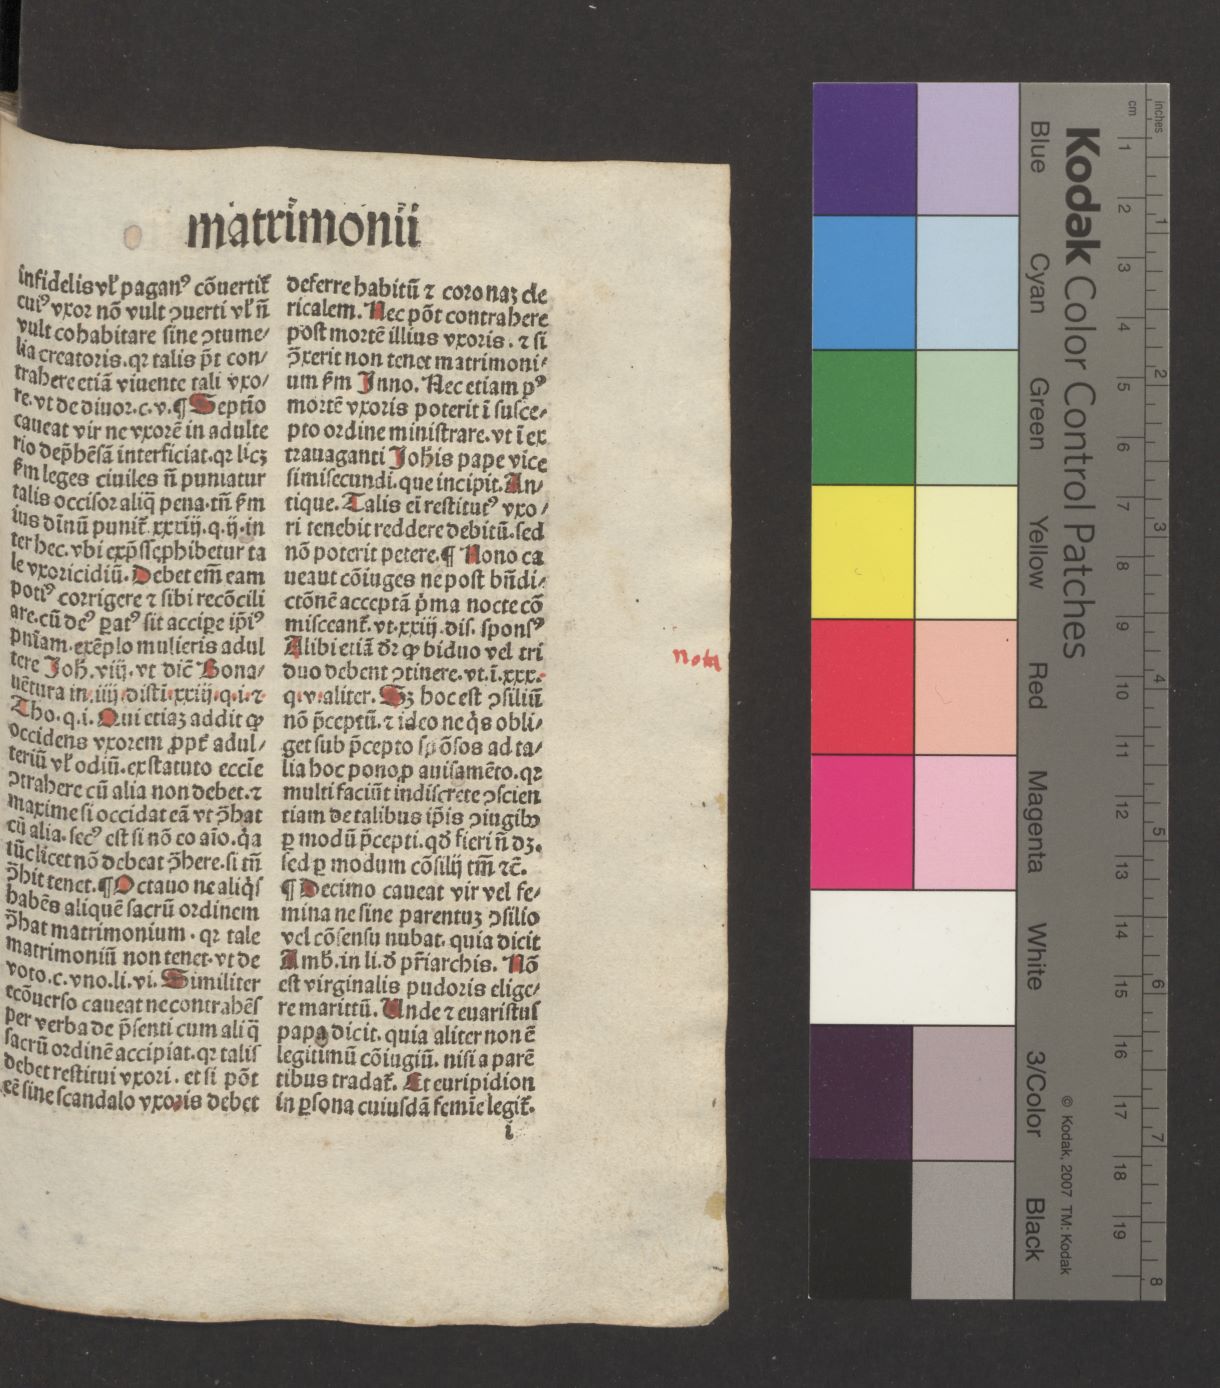 matrimonii
infidelis vl̕ paganꝰ cõuertit᷑
cuiꝰ vxor nõ vult ꝯuerti vl̕ ñ
vult cohabitare sine ꝯtume/
lia creatoris.qꝛ talis p̃t con/
trahere etiã viuente tali vxo/
re.vt de diuor.c.v.¶ Septio
caueat vir ne vxorẽ in adulte
rio dep̃hẽsã interficiat.qꝛ licꝫ
ẜm leges ciuiles ñ puniatur
talis occisor aliq̃ pena.tñ ẜm
ius diñũ punit᷑.xxxiij.q.ij.in
ter hec.vbi exp̃sse ꝓhibetur ta
le vxoricidiũ. Debet em̃ eam
potiꝰ corrigere ⁊ sibi recõcili
are.cũ deꝰ ꝑatꝰ sit accipe ip̃iꝰ
pniam.exẽplo mulieris adul
tere Joh̃.viij.vt dic̃ Bona/
uẽtura in.iiij.disti.xxiij.q.i.⁊
Tho.q.i. Qui etiaꝫ addit ꝙ
occidens vxorem ꝓpt᷑ adul/
teriũ vl̕ odiũ.ex statuto eccĩe
ꝯtrahere cũ alia non debet.⁊
maxime si occidat eã vt ꝯ̃hat
cũ alia.secꝰ est si nõ eo aĩo.q̃a
tũc licet nõ debeat ꝯ̃here.si tñ
ꝯ̃hit tenet.¶ Octauo ne aliq̃s
habẽs aliquẽ sacrũ ordinem
ꝯ̃hat matrimonium.qꝛ tale
matrimoniũ non tenet.vt de
voto.c.vno.li.vi. Similiter
ecõuerso caueat ne contrahẽs
per verba de p̃senti cum aliq̃
sacrũ ordinẽ accipiat.qꝛ talis
debet restitui vxori.et si põt
eẽ sine scandalo vxoris debet
deferre habitũ ⁊ coronaꝫ cle
ricalem. Nec põt contrahere
post mortẽ illius vxoris.⁊ si
ꝯ̃xerit non tenet matrimoni/
um ẜm Inno. Nec etiam pꝰ
mortẽ vxoris poterit ĩ susce/
pto ordine ministrare.vt ĩ ex
trauaganti Joh̃is pape vice
simisecundi.que incipit. An/
tique. Talis eĩ restitutꝰ vxo/
ri tenebit reddere debitũ.sed
nõ poterit petere.¶ Nono ca
ueant cõiuges ne post bñdi/
ctõnẽ acceptã p̃ma nocte cõ
misceant᷑.vt.xxiij.dis. sponsꝰ
Alibi etiã dr̃ ꝙ biduo vel tri
duo debent ꝯtinere.vt.ĩ.xxx.
q.v.aliter. Sꝫ hoc est ꝯsiliũ
nõ p̃ceptũ.⁊ ideo ne q̃s obli/
get sub p̃cepto spõsos ad ta/
lia hoc pono ꝓ auisamẽto.qꝛ
multi faciũt indiscrete ꝯscien
tiam de talibus ip̃is ꝯiugibꝰ
ꝑ modũ p̃cepti.qđ fieri ñ dꝫ.
sed ꝑ modum cõsilij tm̃ ⁊c̃.
¶ Decimo caueat vir vel fe/
mina ne sine parentuꝫ ꝯsilio
vel cõsensu nubat.quia dicit
Amb̃.in li.đ pr̃iarchis. Nõ
est virginalis pudoris elige/
re marittũ. Unde ⁊ euaristus
papa dicit.quia aliter non ẽ
legitimũ cõiugiũ.nisi a parẽ
tibus tradat᷑. Et euripidion
in ꝑsona cuiusdã femĩe legit᷑.
i
nota
inches
cm
Kodak Color Control Patches
© Kodak, 2007 TM: Kodak
Blue Cyan Green Yellow Red Magenta White 3/Color Black
1 2 3 4 5 6 7 8 9 10 11 12 13 14 15 16 17 18 19
1 2 3 4 5 6 7 8